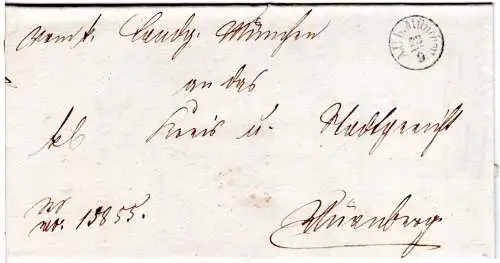 vom k. Landg. München
an das
kl Kreis u. Stadtgericht
No. 15855.
Nürnberg